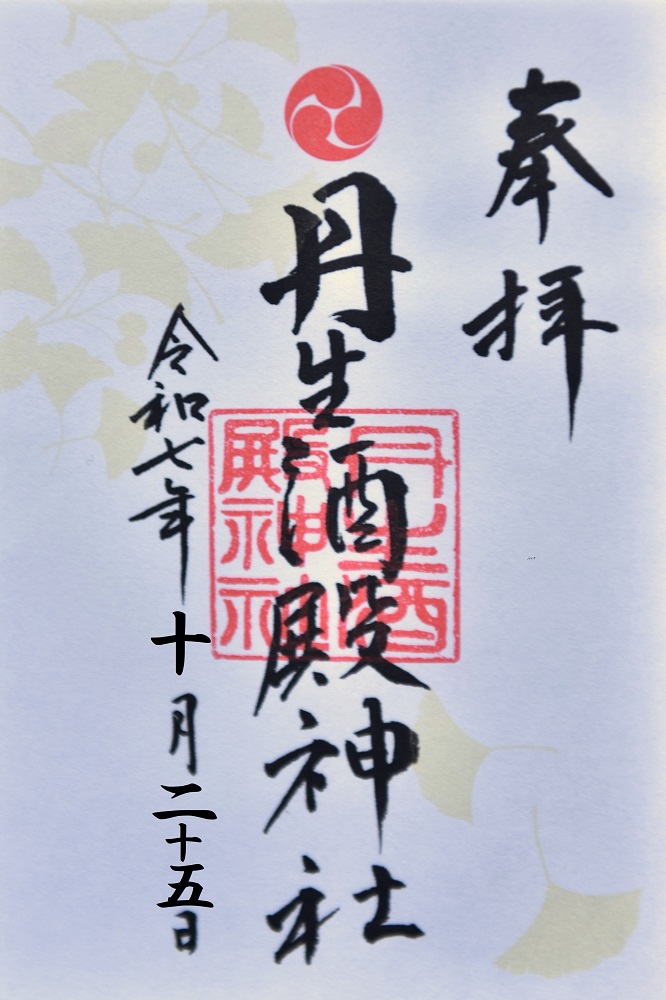 奉拝
丹生酒殿神社
丹生酒殿神社
令和七年十月二十五日